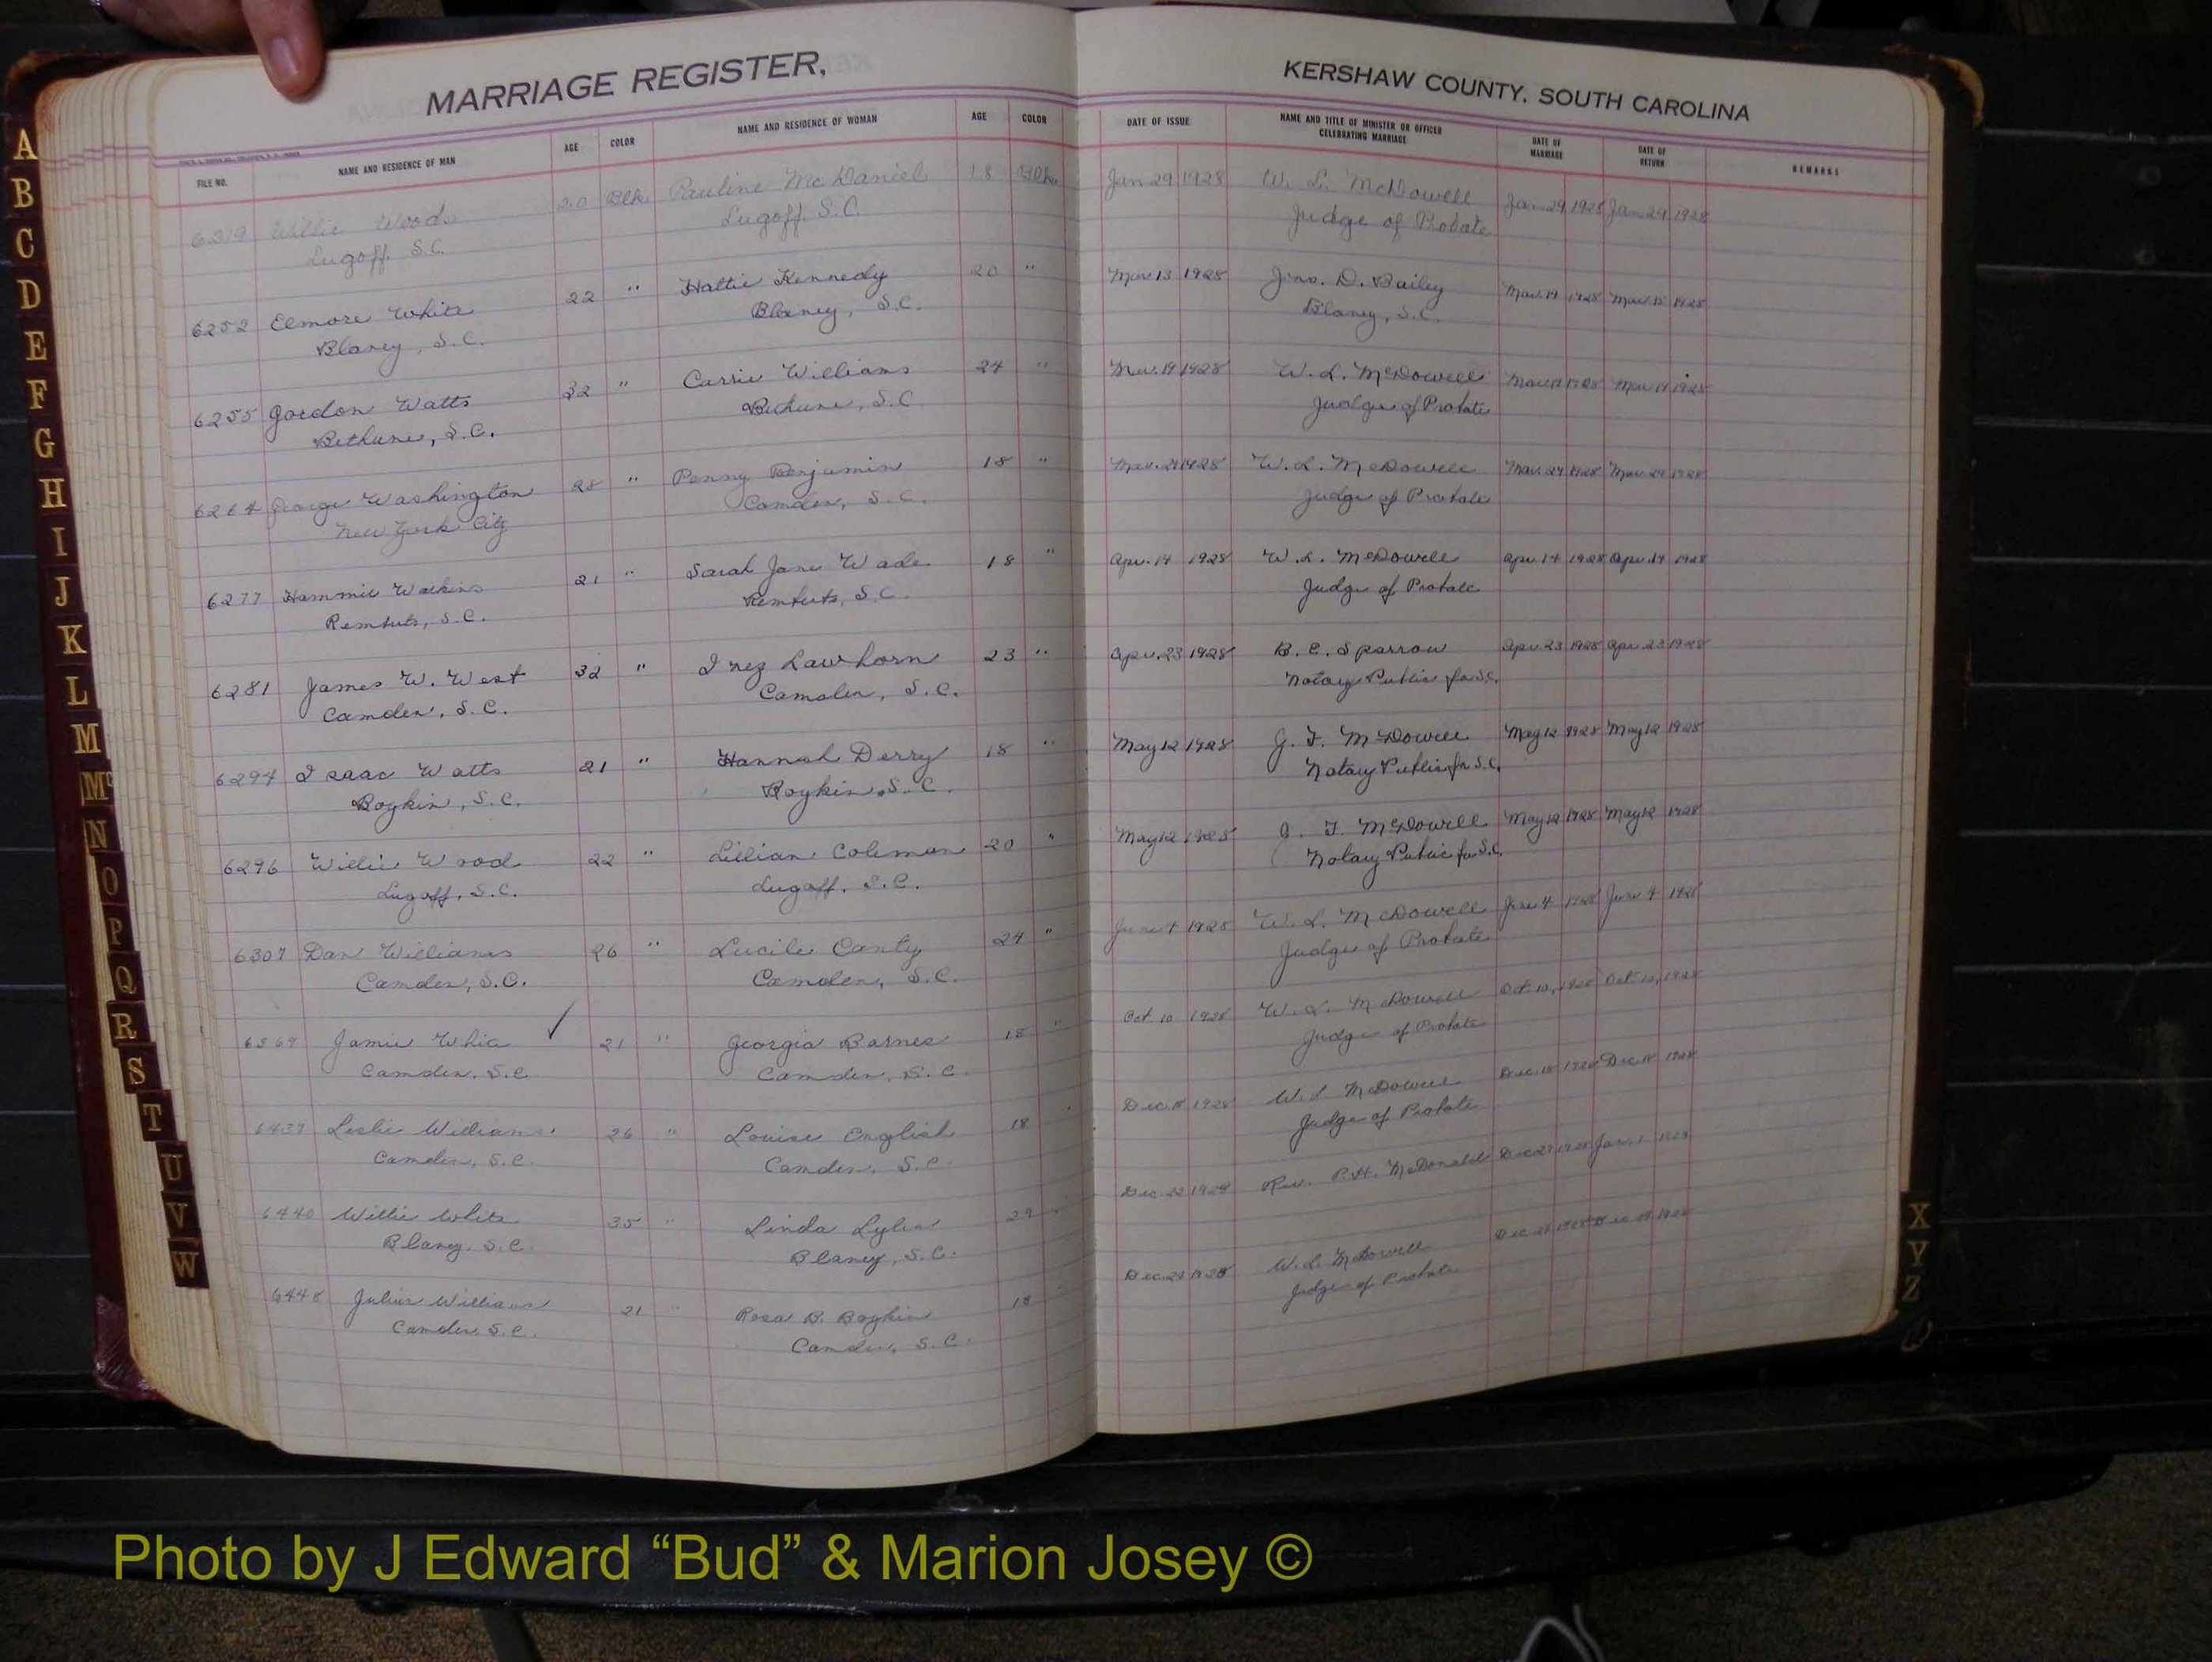 MARRIAGE REGISTER,
KERSHAW COUNTY, SOUTH CAROLINA
FILE NO. NAME AND RESIDENCE OF MAN AGE COLOR NAME AND RESIDENCE OF WOMAN AGE COLOR DATE OF ISSUE NAME AND TITLE OF MINISTER OR OFFICER CELEBRATING MARRIAGE DATE OF MARRIAGE DATE OF RETURN REMARKS
6219 Willie Woods 20 Blk Pauline McDaniel 18 Blk Jan 29 1928 W. L. McDowell Jan 29 1928 Jan 29 1928
Lugoff. S.C. Lugoff. S.C. Judge of Probate
6252 Elmore White 22 " Hattie Kennedy 20 " Mar. 13 1928 Jno. D. Bailey 1928 1928
Blaney, S.C. Blaney, S.C. Blaney, S.C.
6255 Gordon Watts 32 " Carrie Williams 24 " 1928 W. L. McDowell 1928 1928
Bethune, S.C. Bethune, S.C. Judge of Probate
6264 George Washington 28 " Penny Benjamin 18 " Mar. 24 1928 W. L. McDowell Mar. 24 1928 Mar. 24 1928
New York City Camden, S.C. Judge of Probate
6277 Hammie 21 " Sarah Jane Wade 18 " Apr. 14 1928 W. L. McDowell Apr. 14 1928 Apr. 14 1928
S.C. S.C. Judge of Probate
6281 James W. West 32 " Inez Lawhorn 23 " Apr. 23 1928 B. E. Sparrow Apr. 23 1928 Apr. 23 1928
Camden, S.C. Camden, S.C. Notary Public for S.C.
6294 Isaac Watts 21 " Hannah Derry 18 " May 12 1928 McDowell May 12 1928 May 12 1928
Boykin, S.C. Boykin, S.C. Notary Public for S.C.
6296 Willie Wood 22 " Lillian Coleman 20 " May 12 1928 McDowell May 12 1928 May 12 1928
Lugoff, S.C. Lugoff, S.C. Notary Public for S.C.
6307 Dan Williams 26 " Lucile Canty 24 " June 4 1928 W. L. McDowell June 4 1928 June 4 1928
Camden, S.C. Camden, S.C. Judge of Probate
6369 Jamie ✓ 21 " Georgia Barnes 18 " Oct. 10 1928 W. L. McDowell Oct. 10, 1928 Oct. 10, 1928
Camden, S.C. Camden, S.C. Judge of Probate
6437 Leslie Williams 26 " Louise English 18 Dec. 18 1928 W. L. McDowell Dec. 18 1928 Dec. 18 1928
Camden, S.C. Camden, S.C. Judge of Probate
6440 Willie White 35 " Linda 29 Dec. 22 1928 Rev. P. H. McDonald Dec 27 1928 Jan. 1
Blaney, S.C. Blaney, S.C.
6448 Julius Williams 21 " Rosa B. Boykin 18 1928 W. L. McDowell 1928 1928
Camden, S.C. Camden, S.C. Judge of Probate
A
B
C
D
E
F
G
H
I
J
K
L
M
Mc
N
O
P
Q
R
S
T
U
V
W
X
Y
Z
Photo by J Edward “Bud” & Marion Josey ©